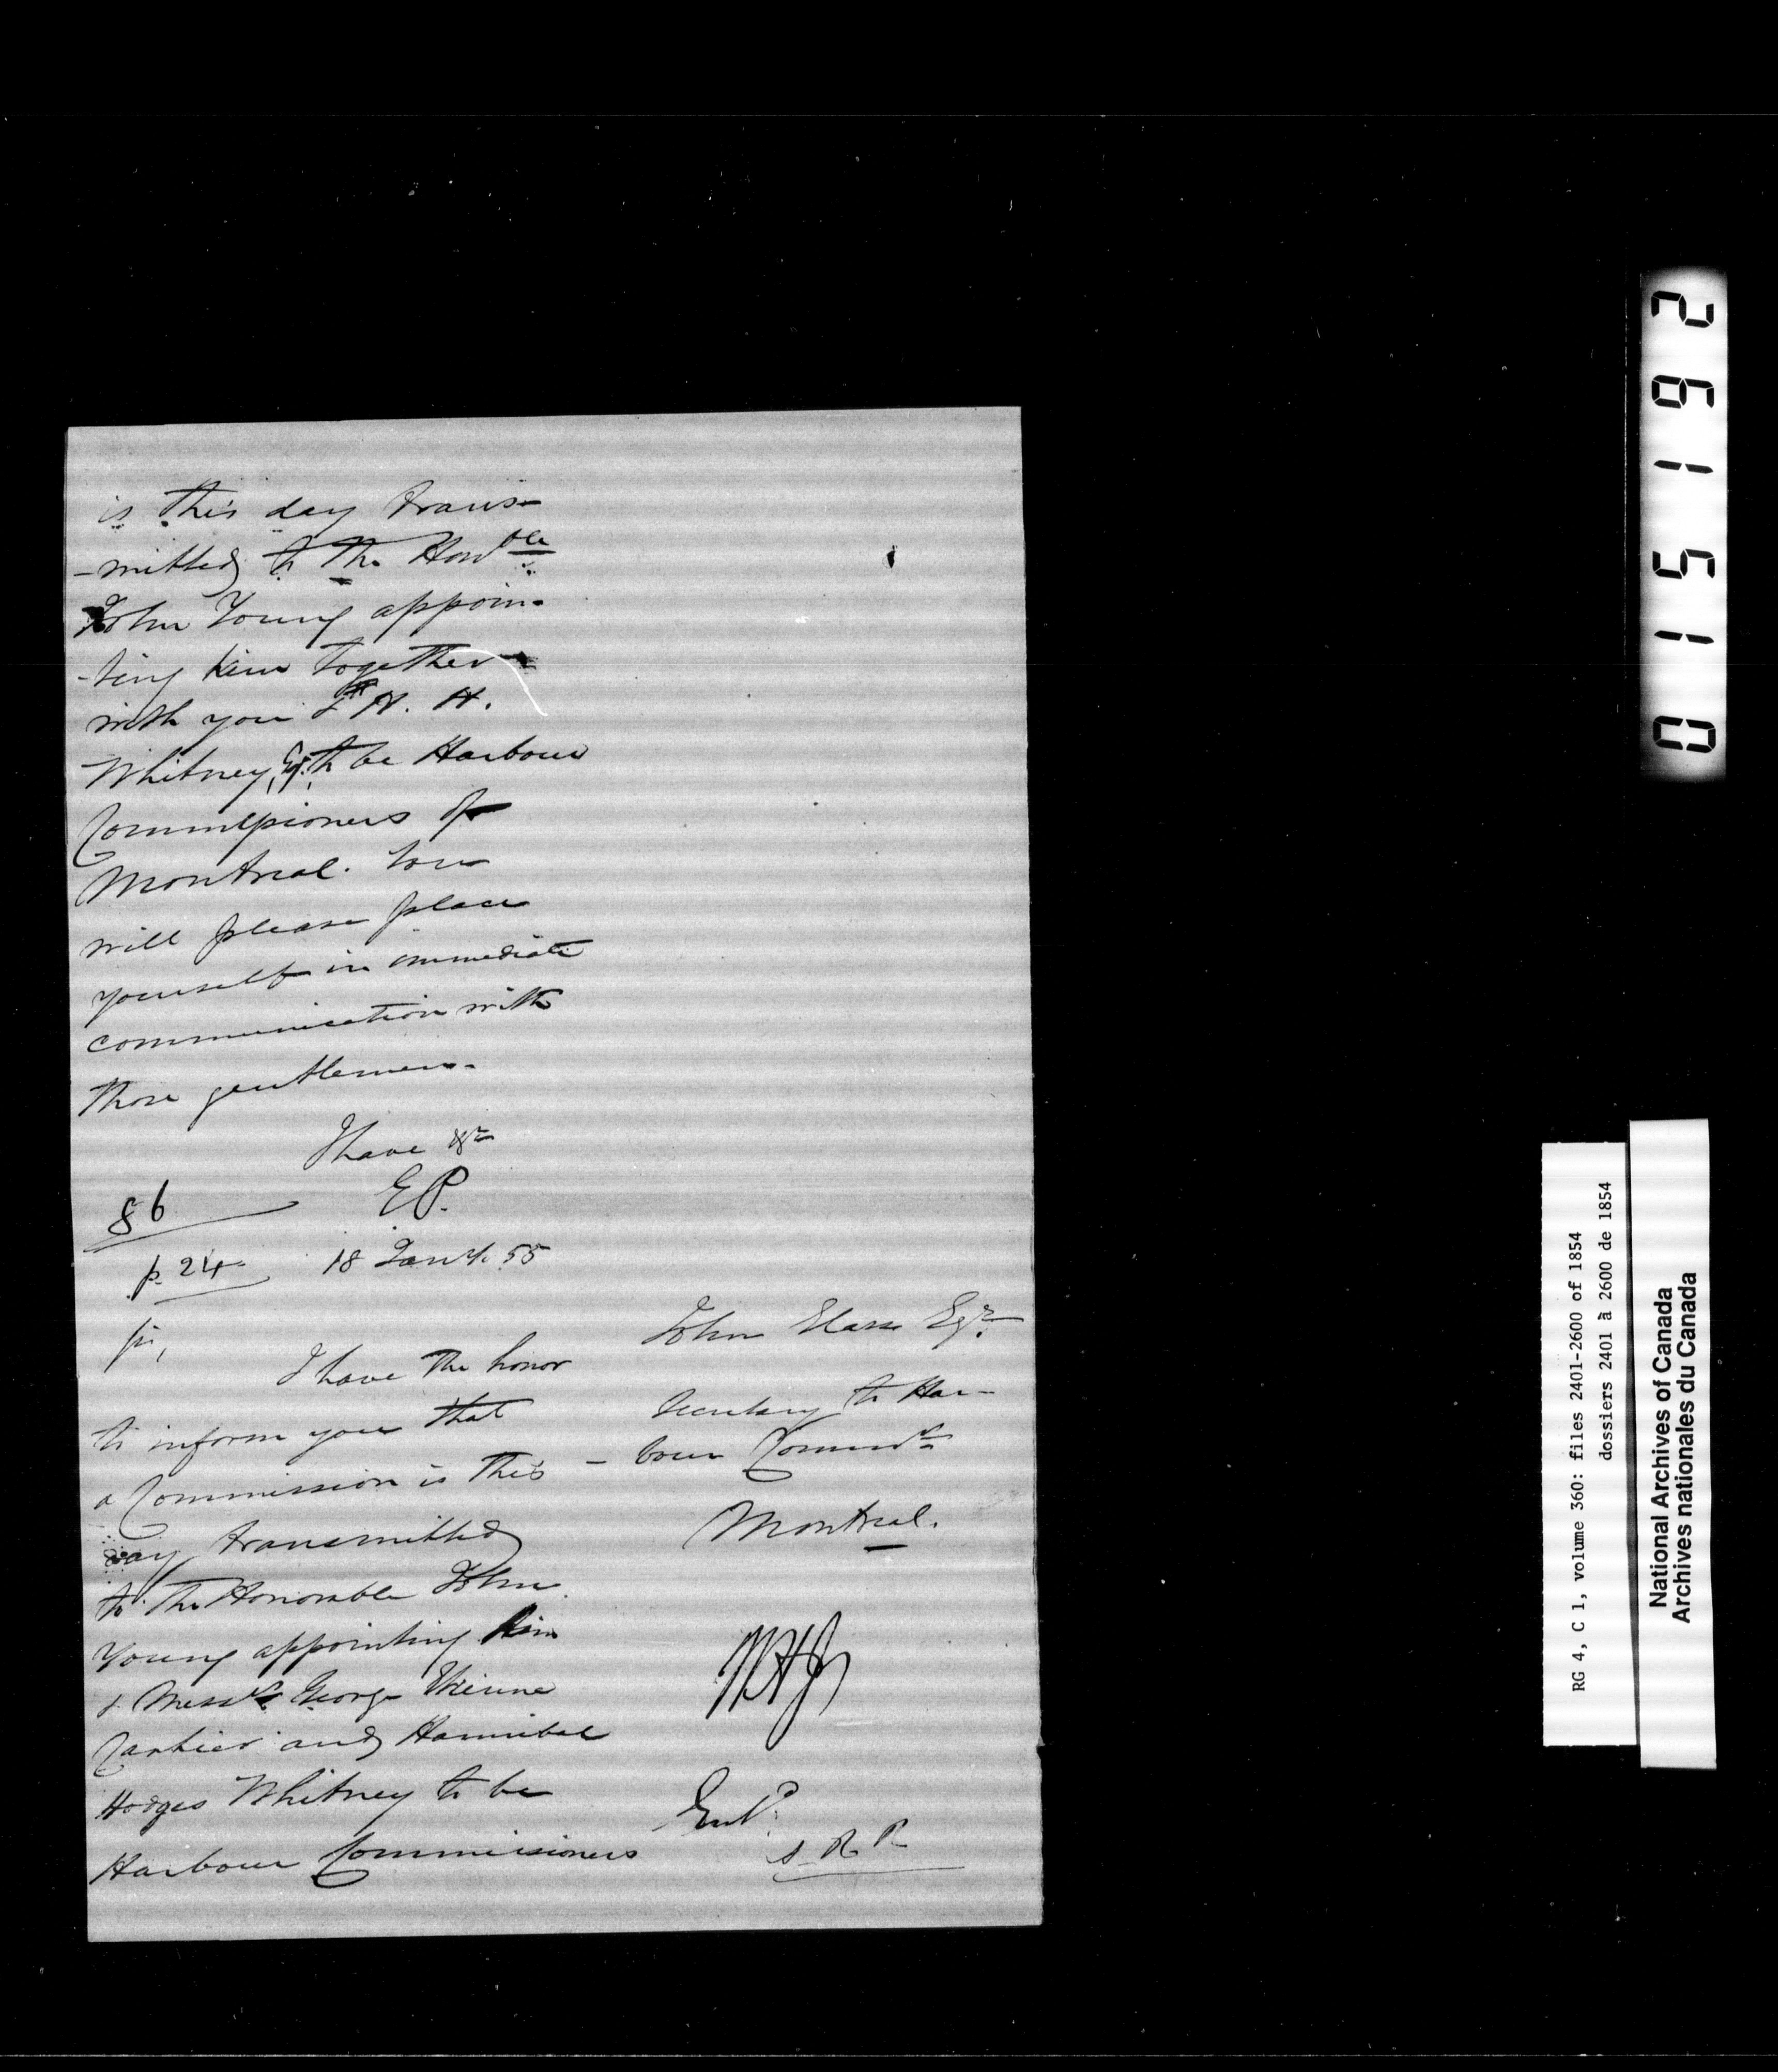 is this day trans-
-mitted to the Hon^ble
John Young appoin-
-ting him together
with you & H. H.
Whitney, Esq. to be Harbour
Commissioners of
Montreal. You
will please place
yourself in immediate
communication with
those gentlemen.
I have &c
E.P.
86
p. 24
18 Jany. 55
Sir,
I have the honor
to inform you that
a Commission is this
day transmitted
to the Honorable John
Young appointing him
& Mess^rs George Etienne
Cartier and Hannibal
Hodges Whitney to be
Harbour Commissioners
John Glass Esq^r.
Secretary to Har-
- bour Comm^rs
Montreal.
Ent^d.
RG 4, C 1, volume 360: files 2401-2600 of 1854
dossiers 2401 à 2600 de 1854
National Archives of Canada
Archives nationales du Canada
015192